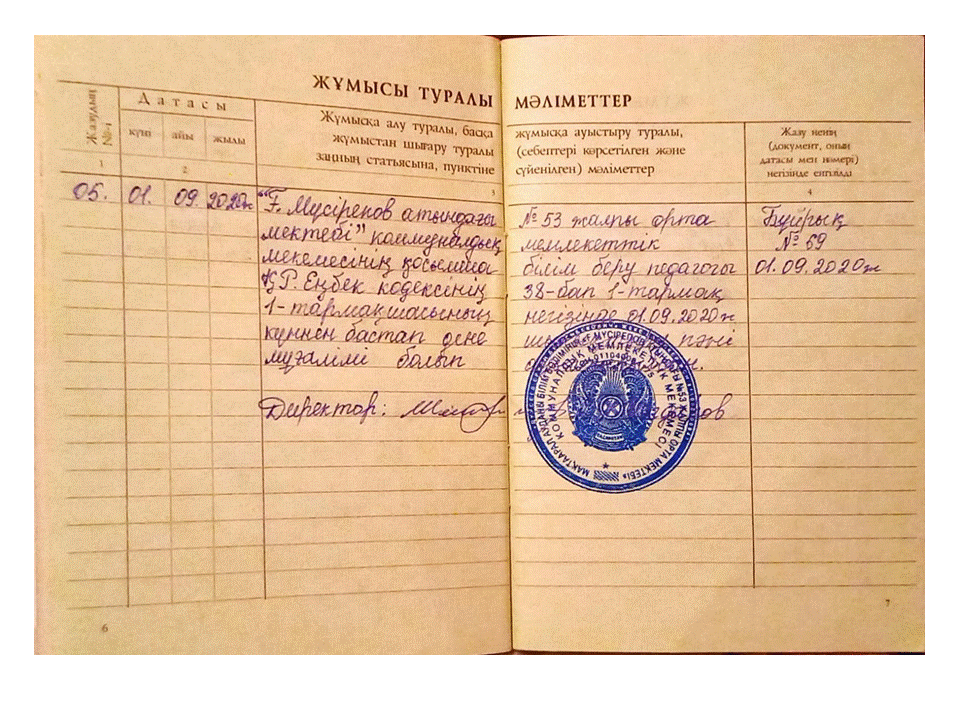 ЖҰМЫСЫ ТУРАЛЫ МӘЛІМЕТТЕР
Жазудың №-і
Датасы
күні айы жылы
Жұмысқа алу туралы, басқа
жұмыстан шығару туралы
заңның статьясына, пунктіне
жұмысқа ауыстыру туралы,
(себептері көрсетілген және
сүйенілген) мәліметтер
Жазу ненің
(документ, оның
датасы мен нөмері)
негізінде енгізілді
1 2 3 4
05. 01. 09. 2020ж
"Ғ. Мүсірепов атындағы № 53 жалпы орта
мектебі" коммуналдық мемлекеттік
мекемесінің қосымша білім беру педагогы
ҚР. Еңбек кодексінің 38-бап 1-тармақ
1-тармақшасының негізінде 01.09.2020ж
күннен бастап әсне пәні
мұғалімі болып
Бұйрық
№ 59
01.09.2020ж
Директор:
МАҚТААРАЛ АУДАНЫ БІЛІМ БӨЛІМІНІҢ «Ғ.МҮСІРЕПОВ АТЫНДАҒЫ №53 ЖАЛПЫ ОРТА МЕКТЕБІ»
КОММУНАЛДЫҚ МЕМЛЕКЕТТІК МЕКЕМЕСІ
6
7